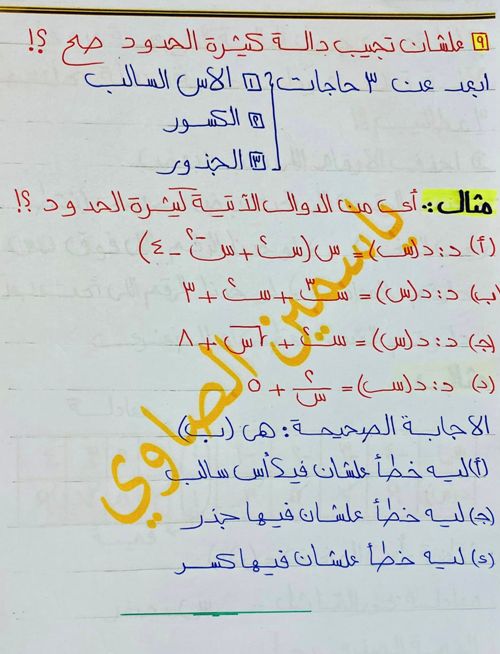 ٩ علشان تجيب دالة كثيرة الحدود صح ؟!
ابعد عن ٣ حاجات ١ الأس السالب
٢ الكسور
٣ الجذور
مثال :- أى من الدوال الآتية كثيرة الحدود ؟!
(أ) د: د(س) = س(س٢ + س-٢ - ٤)
(ب) د: د(س) = س٣ + س٢ + ٣
(ج) د: د(س) = س٢ + √س + ٨
(د) د: د(س) = ٢/س + ٥
الاجابة الصحيحة : هى (ب)
(أ) ليه خطأ علشان فيه أس سالب
(ج) ليه خطأ علشان فيها جذر
(د) ليه خطأ علشان فيها كسر
ياسمين الصاوي